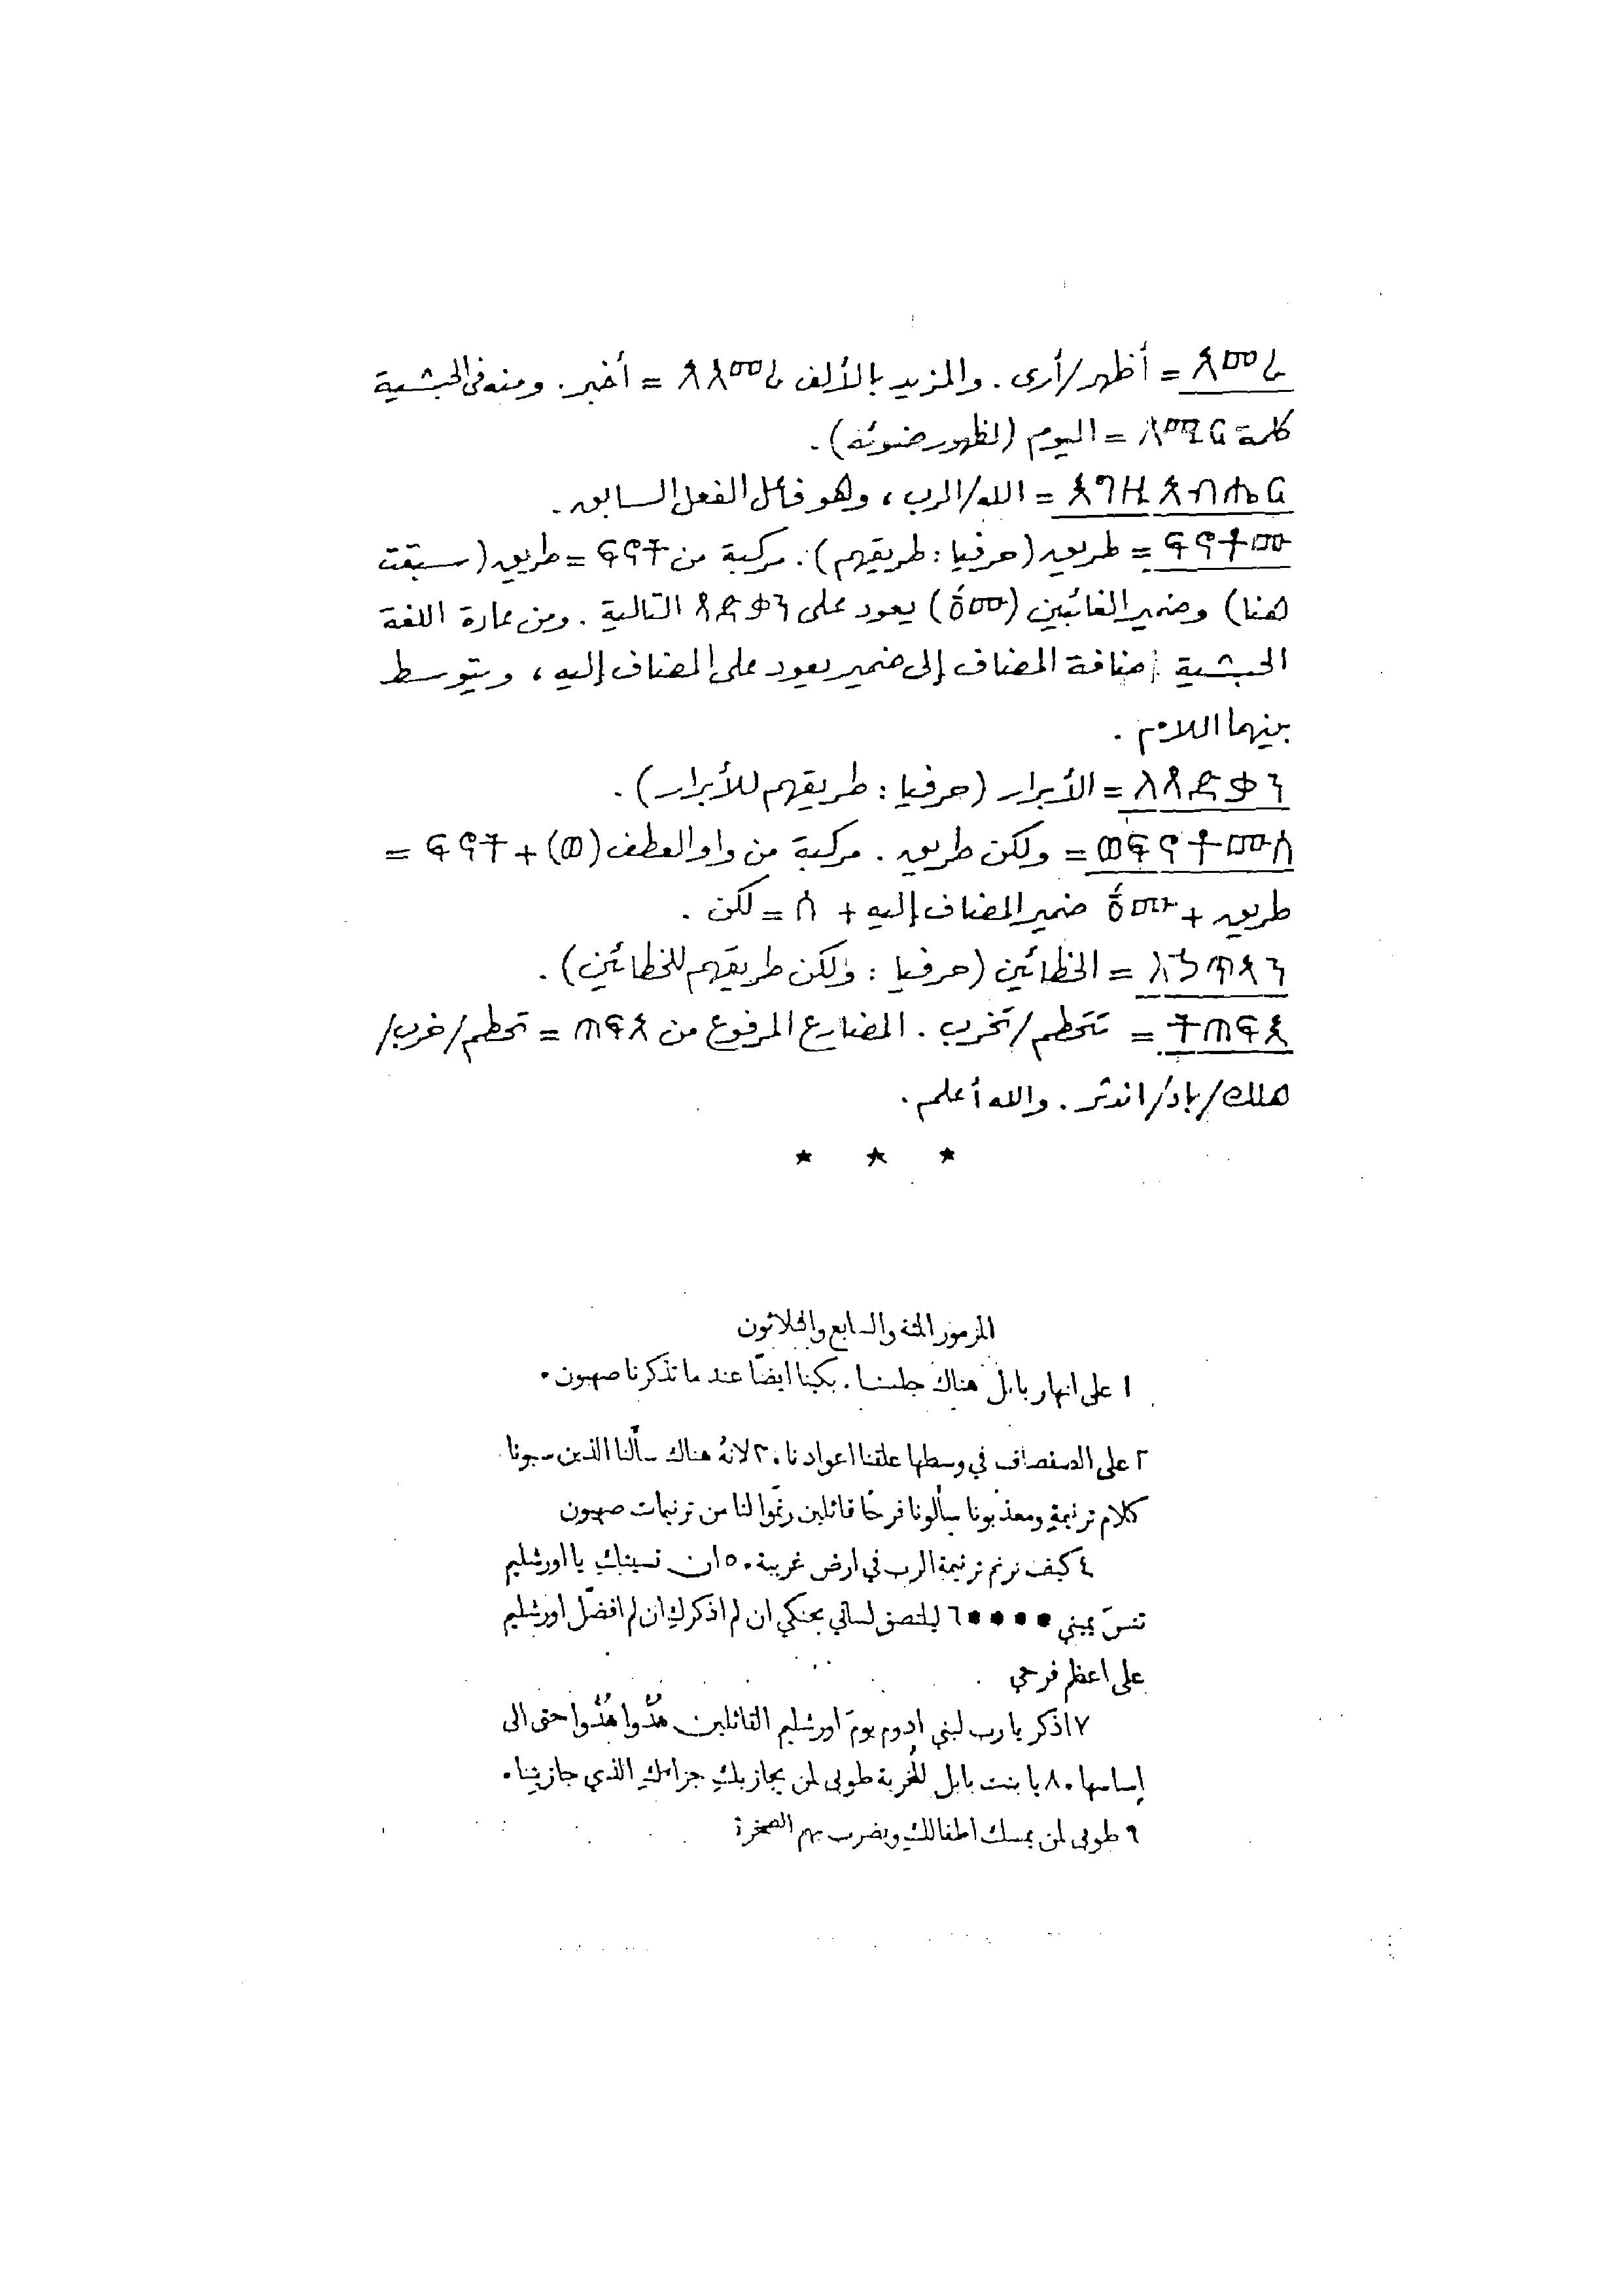 አመረ = أظهر/أرى. والمزيد بالألف አአመረ = أخبر. ومنه في الحبشية
كلمة = اليوم (لظهور ضوئه).
እግዚአብሔር = الله/الرب، وهو فاعل الفعل السابق.
ፍኖቶሙ = طريق (حرفيا: طريقهم). مركبة من ፍኖት = طريق (سبقت
هنا) وضمير الغائبين (ሙ) يعود على ጻድቃን التالية. ومن عادة اللغة
الحبشية إضافة المضاف إلى ضمير يعود على المضاف إليه، ويتوسط
بينهما اللام.
ለጻድቃን = الأبرار (حرفيا: طريقهم للأبرار).
ወፍኖቶሙሰ = ولكن طريق. مركبة من واو العطف (ወ) + ፍኖት =
طريق + ሙ ضمير المضاف إليه + ሰ = لكن.
ለኃጥኣን = الخطائين (حرفيا: ولكن طريقهم للخطائين).
ትጠፍእ = تتحطم/تخرب. المضارع المرفوع من ጠፍአ = تحطم/خرب/
هلك/باد/اندثر. والله أعلم.
* * *
المزمور المئة والسابع والثلاثون
١ على انهار بابل هناك جلسنا. بكينا ايضًا عند ما تذكرنا صهيون.
٢ على الصفصاف في وسطها علقنا اعوادنا. ٣ لانهُ هناك سألنا الذين سبونا
كلام ترنيمةٍ ومعذبونا سألونا فرحًا قائلين رنّموا لنا من ترنيمات صهيون
٤ كيف نرنم ترنيمة الرب في ارض غريبة. ٥ ان نسيتكِ يا اورشليم
تنسَ يميني •••• ٦ ليلتصق لساني بحنكي ان لم اذكركِ ان لم افضّل اورشليم
على اعظم فرحي
٧ اذكر يا رب لبني ادوم يومَ اورشليم القائلين هُدُّوا هُدُّوا حتى الى
إساسها. ٨ يا بنت بابل المُخربة طوبى لمن يجازيكِ جزاءكِ الذي جازيتِنا.
٩ طوبى لمن يمسك اطفالكِ ويضرب بهم الصخرة